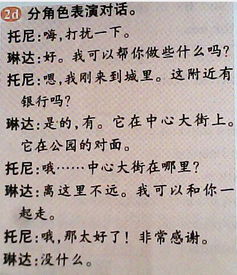 2d 分角色表演对话。
托尼:嗨,打扰一下。
琳达:好。我可以帮你做些什么吗?
托尼:嗯,我刚来到城里。这附近有
银行吗?
琳达:是的,有。它在中心大街上。
它在公园的对面。
托尼:哦……中心大街在哪里?
琳达:离这里不远。我可以和你一
起走。
托尼:哦,那太好了!非常感谢。
琳达:没什么。